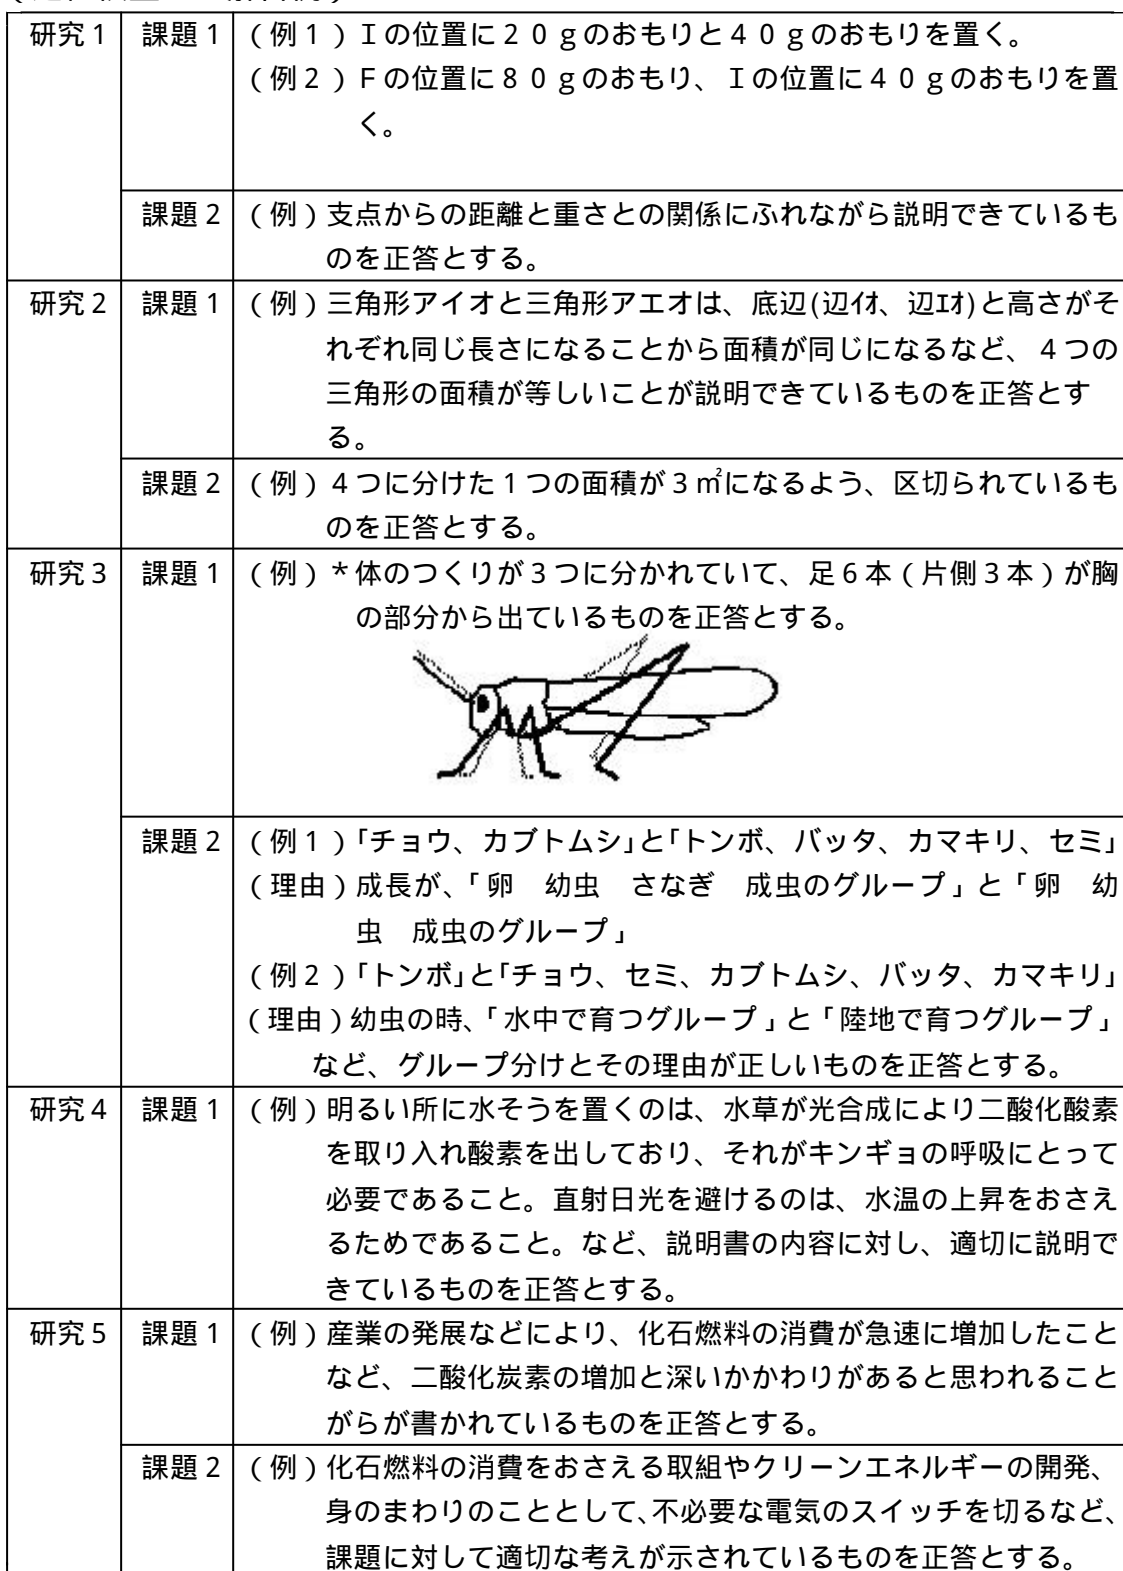 研究１ 課題１ （例１）Ｉの位置に２０ｇのおもりと４０ｇのおもりを置く。
（例２）Ｆの位置に８０ｇのおもり、Ｉの位置に４０ｇのおもりを置
く。
課題２ （例）支点からの距離と重さとの関係にふれながら説明できているも
のを正答とする。
研究２ 課題１ （例）三角形アイオと三角形アエオは、底辺(辺ｲｵ、辺ｴｵ)と高さがそ
れぞれ同じ長さになることから面積が同じになるなど、４つの
三角形の面積が等しいことが説明できているものを正答とす
る。
課題２ （例）４つに分けた１つの面積が３㎡になるよう、区切られているも
のを正答とする。
研究３ 課題１ （例）＊体のつくりが３つに分かれていて、足６本（片側３本）が胸
の部分から出ているものを正答とする。
課題２ （例１）「チョウ、カブトムシ」と「トンボ、バッタ、カマキリ、セミ」
（理由）成長が、「卵　幼虫　さなぎ　成虫のグループ」と「卵　幼
虫　成虫のグループ」
（例２）「トンボ」と「チョウ、セミ、カブトムシ、バッタ、カマキリ」
（理由）幼虫の時、「水中で育つグループ」と「陸地で育つグループ」
など、グループ分けとその理由が正しいものを正答とする。
研究４ 課題１ （例）明るい所に水そうを置くのは、水草が光合成により二酸化酸素
を取り入れ酸素を出しており、それがキンギョの呼吸にとって
必要であること。直射日光を避けるのは、水温の上昇をおさえ
るためであること。など、説明書の内容に対し、適切に説明で
きているものを正答とする。
研究５ 課題１ （例）産業の発展などにより、化石燃料の消費が急速に増加したこと
など、二酸化炭素の増加と深いかかわりがあると思われること
がらが書かれているものを正答とする。
課題２ （例）化石燃料の消費をおさえる取組やクリーンエネルギーの開発、
身のまわりのこととして、不必要な電気のスイッチを切るなど、
課題に対して適切な考えが示されているものを正答とする。